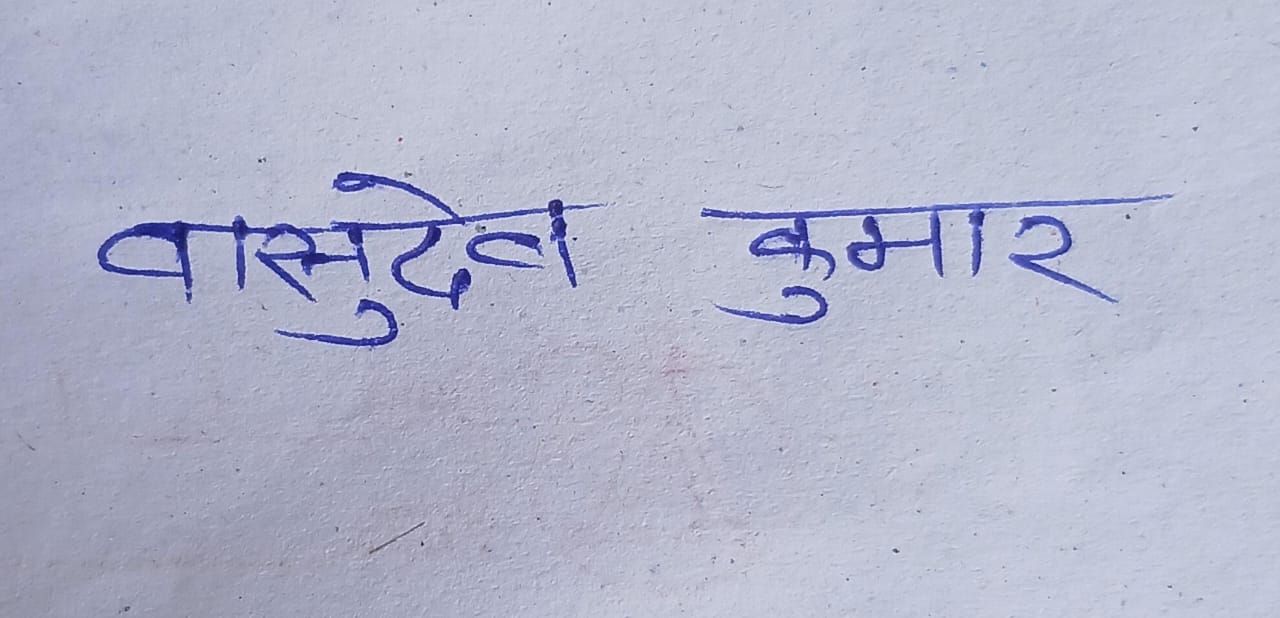 वासुदेव कुमार